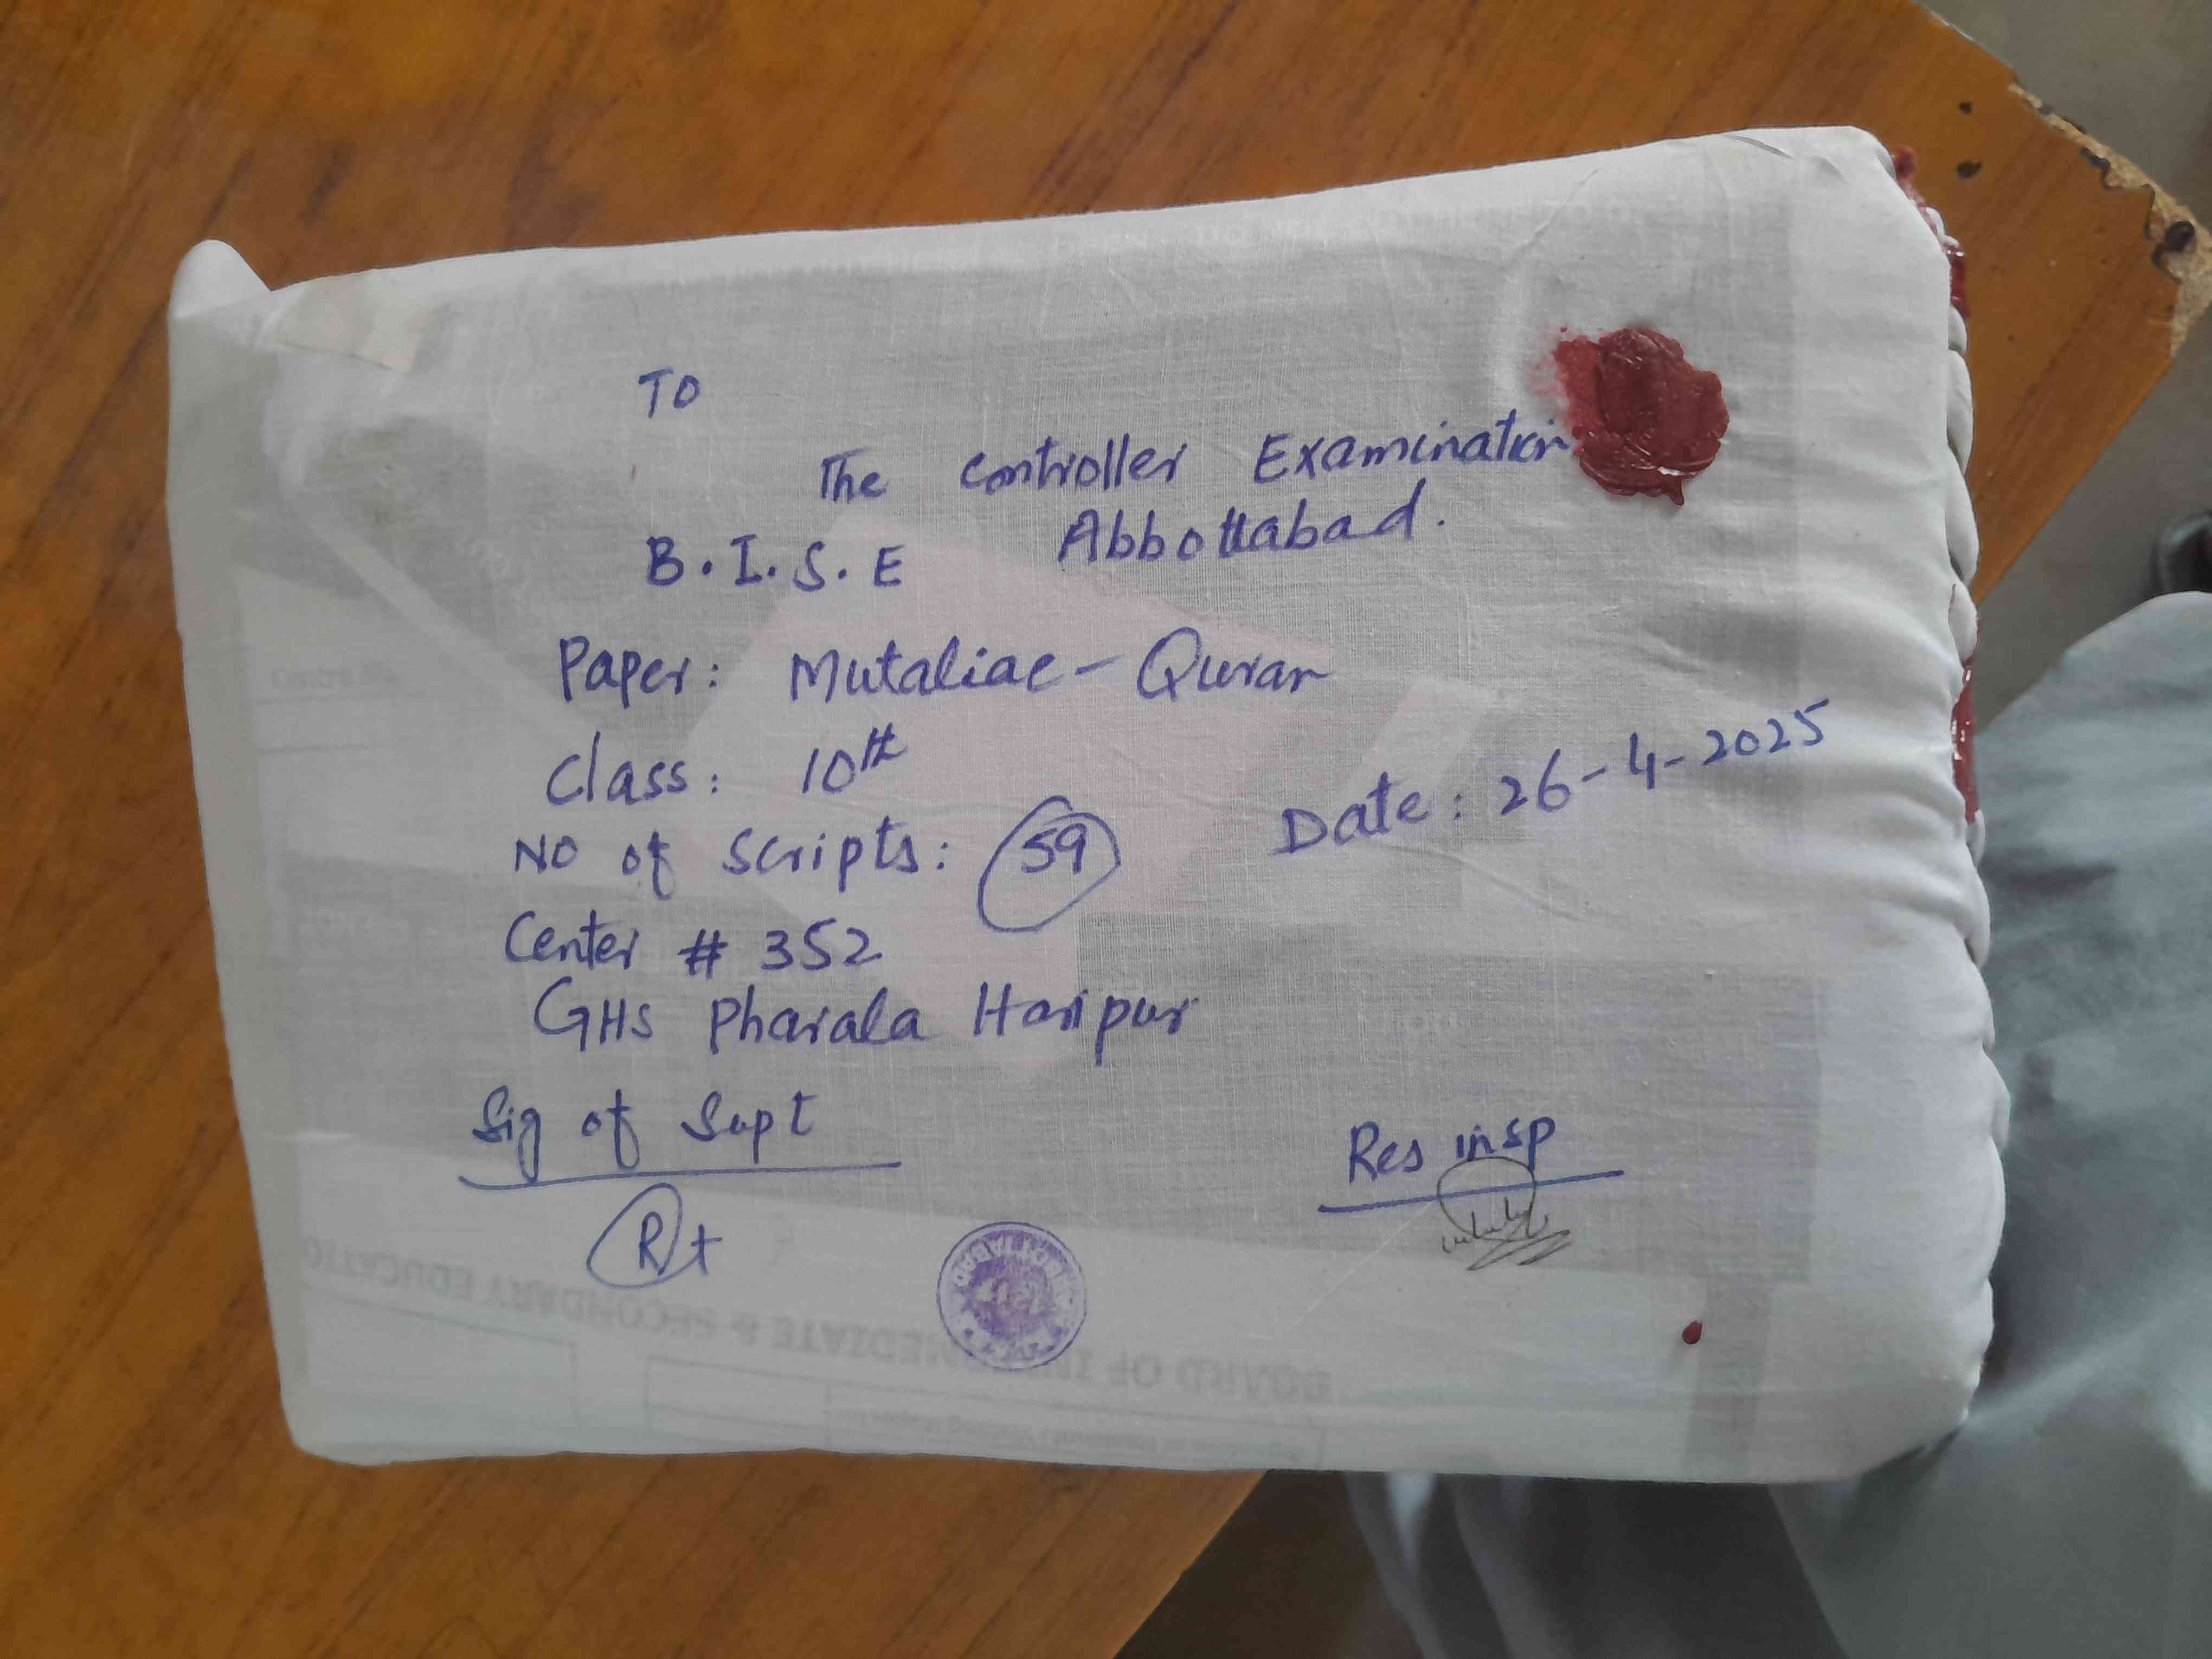 TO
The Controller Examination
B.I.S.E Abbottabad.
Paper: Mutaliae-Quran
Class: 10th
Date: 26-4-2025
NO of Scripts: 59
Center # 352
GHS Pharala Haripur
Sig of Supt
Res insp
Rt
BOARD OF INTERMEDIATE & SECONDARY EDUCATIO